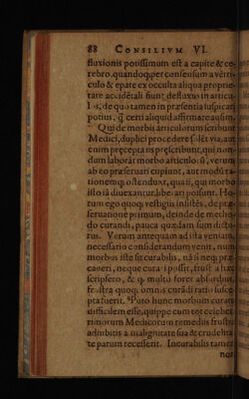 88 CONSILIVM VI.
fluxionis potissimum est a capite & ce-
rebro, quandoq; per consensum a vẽtri-
culo & epate ex occulta aliqua proprie-
tate accidẽtali fiunt defluxus in articu-
los, de quo tamen in præsentia suspicari
potius, q̃ certi aliquid affirmare ausim.
Qui de morbis articulorum scribunt
Medici, duplici procedere solẽt via, aut
enim præcepta ijs præscribunt, qui non-
dum laborãt morbo articulo
ab eo præseruari cupiunt, aut modũ ra-
tionemq; ostendunt, quali, qui morbo
isto iã diuexantur, liberari possunt. Ho-
rum ego quoq; vestigijs insistẽs, de præ-
seruatione primum, deinde de medẽ
do curandi, pauca quædam sum dictu-
rus. Verum antequam ad ista venium
necessario considerandum venit, num
morbus iste sit curabilis, nã si neq; præ-
caueri, neque curari possit, frustra hæc
scripsero, & q multi foret
frustra quoq; omnis curãdi ratio susce-
pta fuerit. Puto hunc morbum curatu
difficilem esse, quippe cum tot celeber-
rimorum Medicorum remedijs frustra
adhibitis a malignitate sua & crudelita-
te parum recesserit. Incurabilis tamen
non